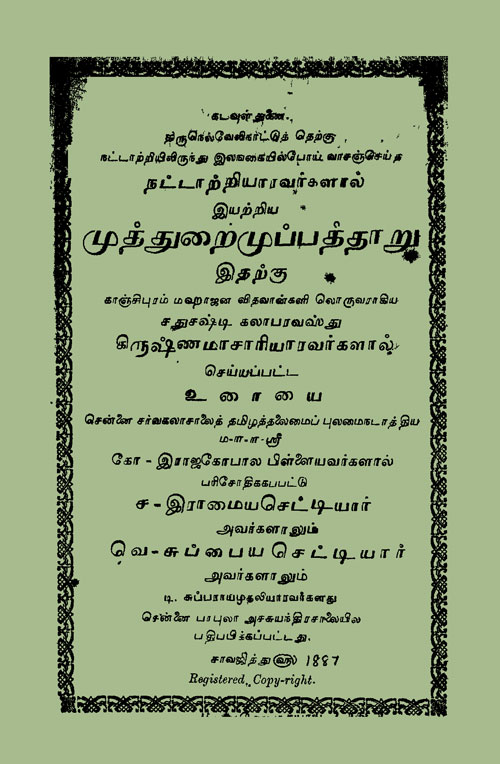 கடவுள் துணை.
திருநெல்வேலிகாட்டுத் தெற்கு
நட்டாற்றியிலிருந்து இலவகையில்போய் வாசஞ்செய்த
நட்டாற்றியாரவர்களால்
இயற்றிய
முத்துறைமுப்பத்தாறு
இதற்கு
காஞ்சிபுரம் மஹாஜன வித்வான்களி லொருவராகிய
சதுசஷ்டி கலாபரவஸ்து
கிருஷ்ணமாசாரியாரவர்களால்
செய்யப்பட்ட
உரையை
சென்னை சர்வகலாசாலைத் தமிழ்த்தலைமைப் புலமைநடாத்திய
ம-ள-ள-ஸ்ரீ
கோ - இராஜகோபால பிள்ளையவர்களால்
பரிசோதிக்கப்பட்டு
ச-இராமையசெட்டியார்
அவர்களாலும்
வெ-சுப்பைய செட்டியார்
அவர்களாலும்
டி. சுப்பராயமுதலியாரவர்களது
சென்னை பாபுலா அச்சுயந்திரசாலையில்
பதிப்பிக்கப்பட்டது.
சர்வஜித்து ௵ 1887
Registered, Copy-right.